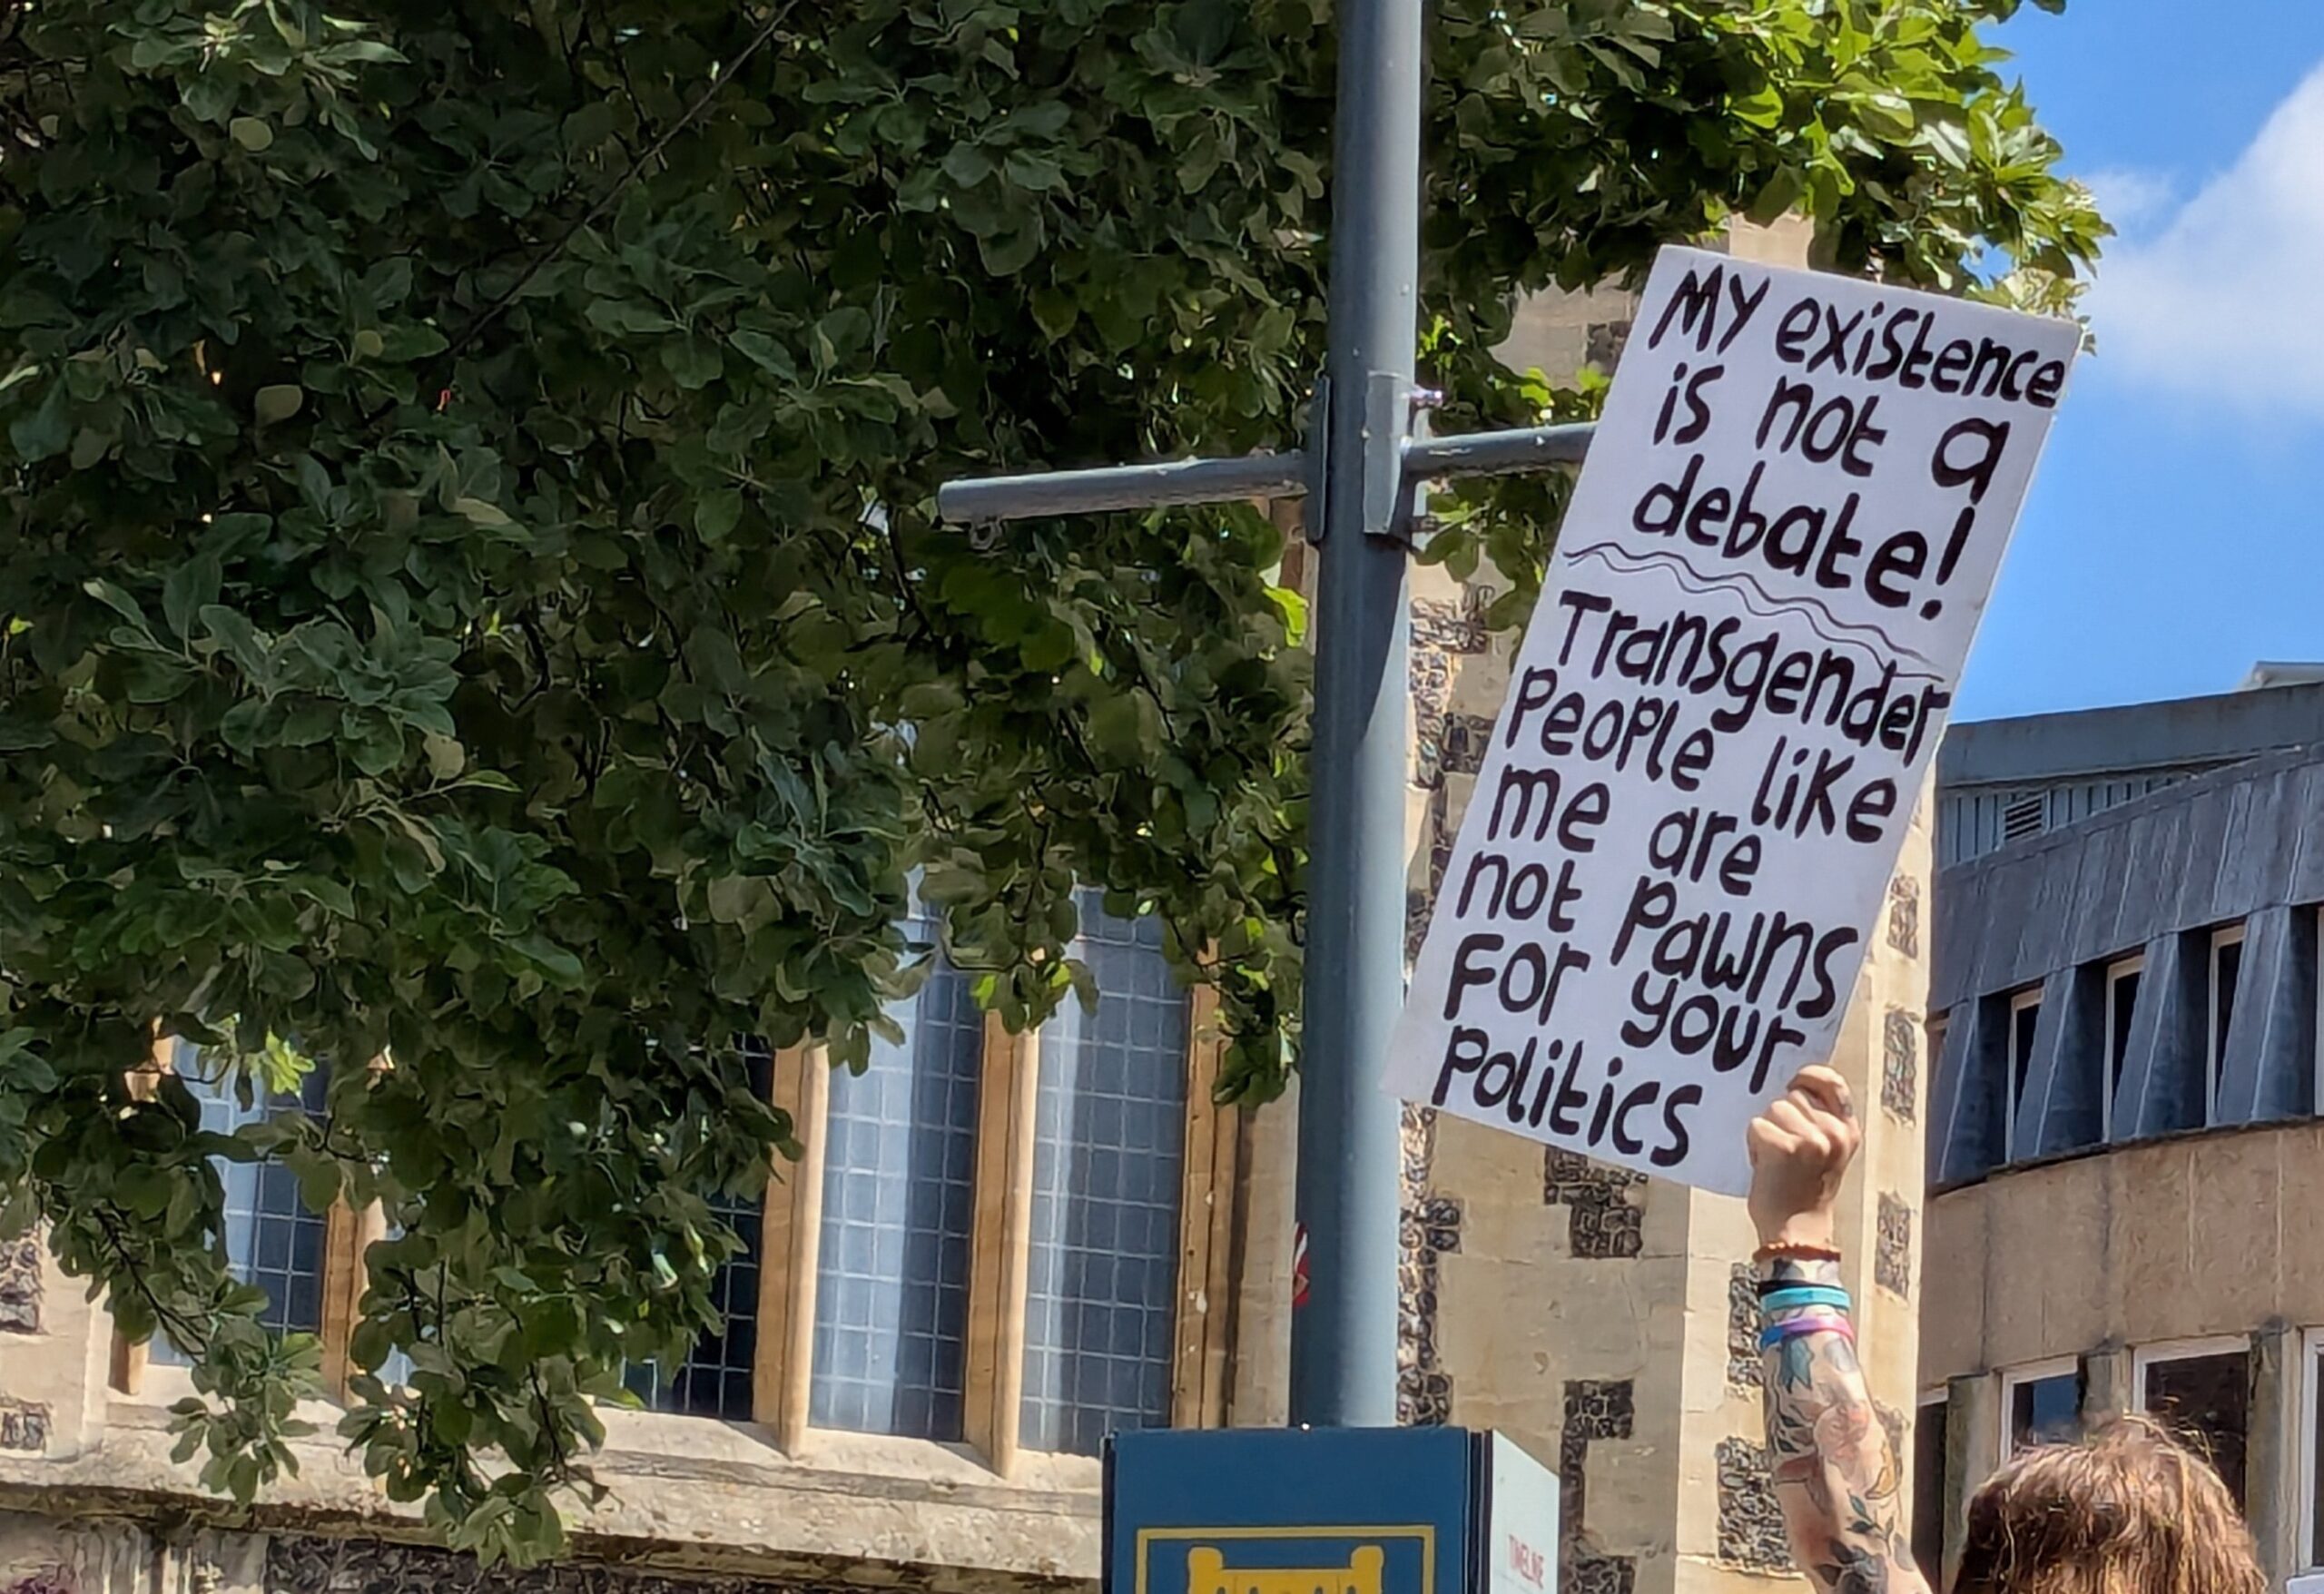 My existence
is not a
debate!
Transgender
People like
me are
not Pawns
For your
Politics
TIMELINE